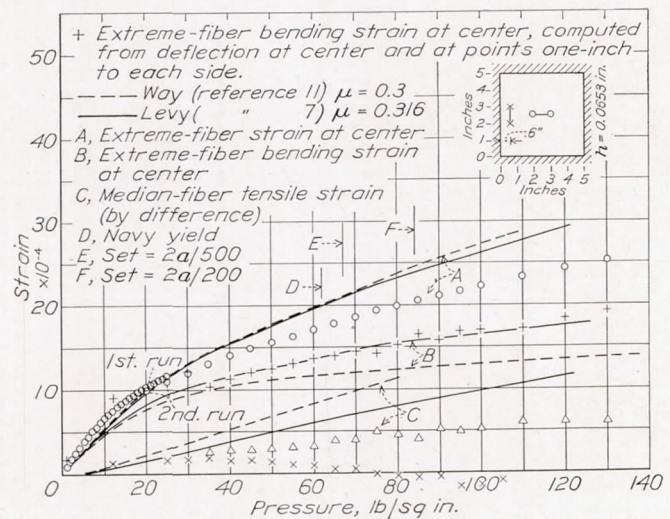 50
+ Extreme-fiber bending strain at center, computed
from deflection at center and at points one-inch
to each side.
Way (reference 11) μ = 0.3
Levy ( " 7) μ = 0.316
A, Extreme-fiber strain at center
B, Extreme-fiber bending strain
at center
C, Median-fiber tensile strain
(by difference)
D, Navy yield
E, Set = 2a/500
F, Set = 2a/200
5
4
3
2
1
0
Inches
6"
h = 0.0653 in.
0 1 2 3 4 5
Inches
40
30
20
10
0
Strain
×10⁻⁴
F
E
D
A
B
C
1st. run
2nd. run
0 20 40 60 80 100 120 140
Pressure, lb/sq in.